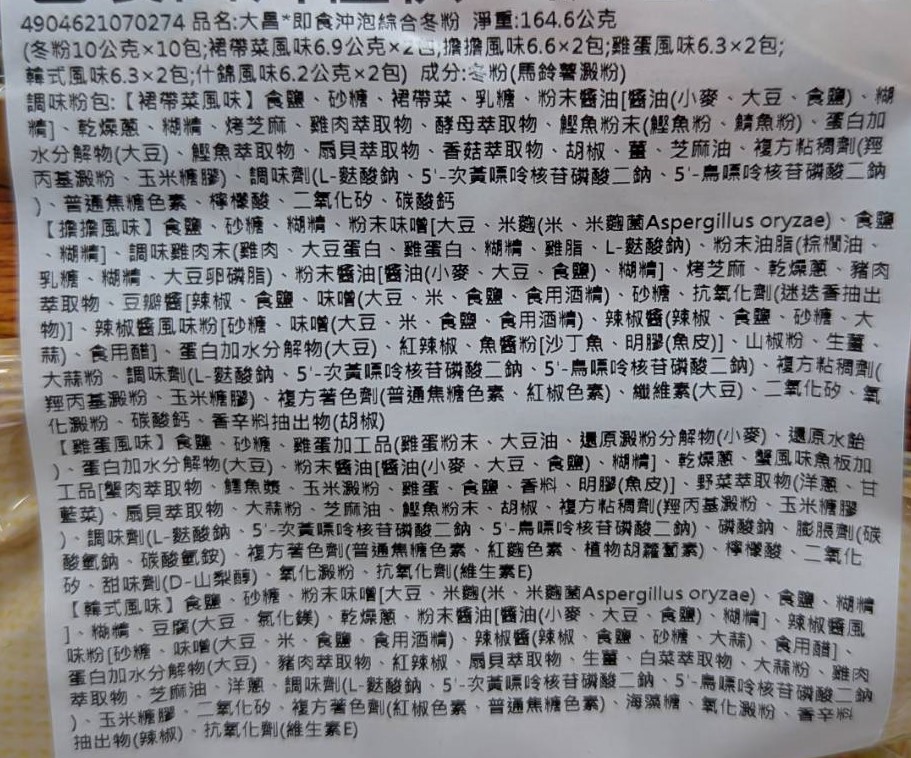 4904621070274 品名:大昌*即食沖泡綜合冬粉 淨重:164.6公克
(冬粉10公克×10包;裙帶菜風味6.9公克×2包;擔擔風味6.6×2包;雞蛋風味6.3×2包;
韓式風味6.3×2包;什錦風味6.2公克×2包) 成分:冬粉(馬鈴薯澱粉)
調味粉包:【裙帶菜風味】食鹽、砂糖、裙帶菜、乳糖、粉末醬油[醬油(小麥、大豆、食鹽)、糊
精]、乾燥蔥、糊精、烤芝麻、雞肉萃取物、酵母萃取物、鰹魚粉末(鰹魚粉、鯖魚粉)、蛋白加
水分解物(大豆)、鰹魚萃取物、扇貝萃取物、香菇萃取物、胡椒、薑、芝麻油、複方粘稠劑(羥
丙基澱粉、玉米糖膠)、調味劑(L-麩酸鈉、5'-次黃嘌呤核苷磷酸二鈉、5'-鳥嘌呤核苷磷酸二鈉
)、普通焦糖色素、檸檬酸、二氧化矽、碳酸鈣
【擔擔風味】食鹽、砂糖、糊精、粉末味噌[大豆、米麴(米、米麴菌Aspergillus oryzae)、食鹽
、糊精]、調味雞肉末(雞肉、大豆蛋白、雞蛋白、糊精、雞脂、L-麩酸鈉)、粉末油脂(棕櫚油、
乳糖、糊精、大豆卵磷脂)、粉末醬油[醬油(小麥、大豆、食鹽)、糊精]、烤芝麻、乾燥蔥、豬肉
萃取物、豆瓣醬[辣椒、食鹽、味噌(大豆、米、食鹽、食用酒精)、砂糖、抗氧化劑(迷迭香抽出
物)]、辣椒醬風味粉[砂糖、味噌(大豆、米、食鹽、食用酒精)、辣椒醬(辣椒、食鹽、砂糖、大
蒜)、食用醋]、蛋白加水分解物(大豆)、紅辣椒、魚醬粉[沙丁魚、明膠(魚皮)]、山椒粉、生薑、
大蒜粉、調味劑(L-麩酸鈉、5'-次黃嘌呤核苷磷酸二鈉、5'-鳥嘌呤核苷磷酸二鈉)、複方粘稠劑(
羥丙基澱粉、玉米糖膠)、複方著色劑(普通焦糖色素、紅椒色素)、纖維素(大豆)、二氧化矽、氧
化澱粉、碳酸鈣、香辛料抽出物(胡椒)
【雞蛋風味】食鹽、砂糖、雞蛋加工品(雞蛋粉末、大豆油、還原澱粉分解物(小麥)、還原水飴
)、蛋白加水分解物(大豆)、粉末醬油[醬油(小麥、大豆、食鹽)、糊精]、乾燥蔥、蟹風味魚板加
工品[蟹肉萃取物、鱈魚漿、玉米澱粉、雞蛋、食鹽、香料、明膠(魚皮)]、野菜萃取物(洋蔥、甘
藍菜)、扇貝萃取物、大蒜粉、芝麻油、鰹魚粉末、胡椒、複方粘稠劑(羥丙基澱粉、玉米糖膠
)、調味劑(L-麩酸鈉、5'-次黃嘌呤核苷磷酸二鈉、5'-鳥嘌呤核苷磷酸二鈉)、磷酸鈉、膨脹劑(碳
酸氫鈉、碳酸氫銨)、複方著色劑(普通焦糖色素、紅麴色素、植物胡蘿蔔素)、檸檬酸、二氧化
矽、甜味劑(D-山梨醇)、氧化澱粉、抗氧化劑(維生素E)
【韓式風味】食鹽、砂糖、粉末味噌[大豆、米麴(米、米麴菌Aspergillus oryzae)、食鹽、糊精
]、糊精、豆腐(大豆、氯化鎂)、乾燥蔥、粉末醬油[醬油(小麥、大豆、食鹽)、糊精]、辣椒醬風
味粉[砂糖、味噌(大豆、米、食鹽、食用酒精)、辣椒醬(辣椒、食鹽、砂糖、大蒜)、食用醋]、
蛋白加水分解物(大豆)、豬肉萃取物、紅辣椒、扇貝萃取物、生薑、白菜萃取物、大蒜粉、雞肉
萃取物、芝麻油、洋蔥、調味劑(L-麩酸鈉、5'-次黃嘌呤核苷磷酸二鈉、5'-鳥嘌呤核苷磷酸二鈉
)、玉米糖膠、二氧化矽、複方著色劑(紅椒色素、普通焦糖色素)、海藻糖、氧化澱粉、香辛料
抽出物(辣椒)、抗氧化劑(維生素E)